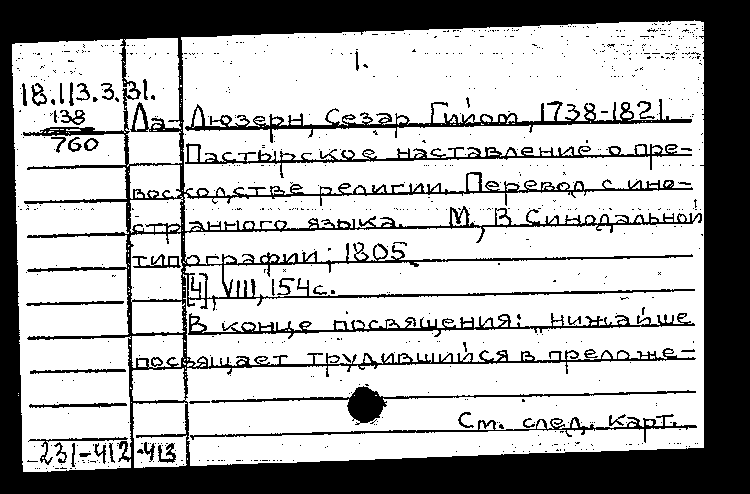 1.
18.113.3.31.
138
760
Ла-Люзерн, Сезар Гийом, 1738-1821.
Пастырское наставление о пре-
восходстве религии. Перевод с ино-
странного языка. М., В Синодальной
типографии, 1805.
[4], VIII, 154 с.
В конце посвящения: „нижайше
посвящает трудившийся в преложе-
См. след. карт.
231-412-413